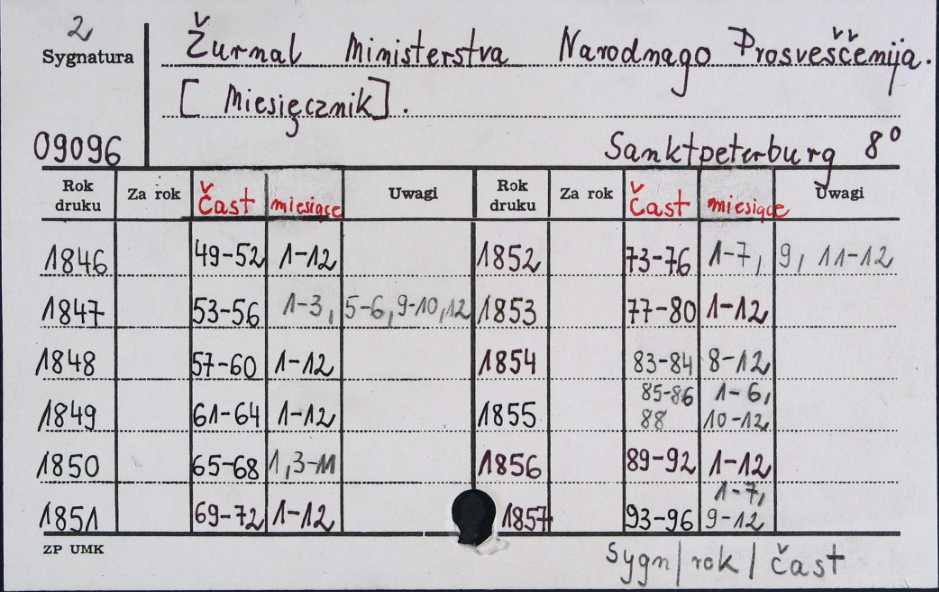 2
Sygnatura
Žurnal Ministerstva Narodnago Prosveščenija.
[Miesięcznik].
09096
Sanktpeterburg 8°
Rok druku Za rok Čast miesiące Uwagi Rok druku Za rok Čast miesiące Uwagi
1846 49-52 1-12 1852 73-76 1-7, 9, 11-12
1847 53-56 1-3, 5-6, 9-10, 12 1853 77-80 1-12
1848 57-60 1-12 1854 83-84 8-12
1849 61-64 1-12 1855 85-86 88 1-6, 10-12
1850 65-68 1, 3-11 1856 89-92 1-12
1851 69-72 1-12 1857 93-96 1-7, 9-12
ZP UMK
Sygn/rok/čast